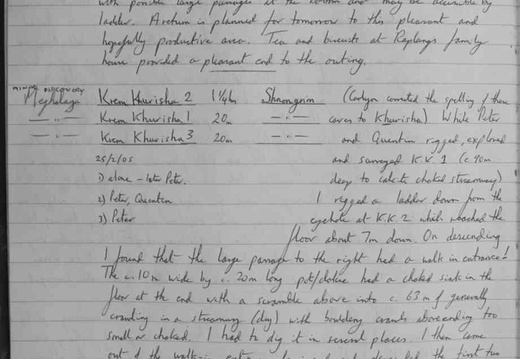 with possible large passages at the bottom and may be accessible by
ladder. A return is planned for tomorrow to this pleasant and
hopefully productive area. Tea and biscuits at Raplangs family
house provided a pleasant end to the outing.
MINOR DISCOVERY
Meghalaya Krem Khurisha 2 Shnongrim (Carlyn corrected the spelling of these
—"— Krem Khurisha 1 20m —"— caves to Khurisha) While Peter
—"— Krem Khurisha 3 20m and Quentin rigged, explored
25/2/05 and surveyed K.K.1 (c.90m
1) alone - later Peter. deep to calcite choked streamway)
2) Peter, Quentin I rigged a ladder down from the
3) Peter eyehole at K.K.2 which reached the
floor about 7m down. On descending
I found that the large passage to the right had a walk in entrance!
The c.10m wide by c.20m long pot/doline had a choked sink in the
floor at the end with a scramble above into c. 63m of generally
crawling in a streamway (dry) with bouldery crawls above ending too
small or choked. I had to dig it in several places. I then came
out of the walk-in the first two